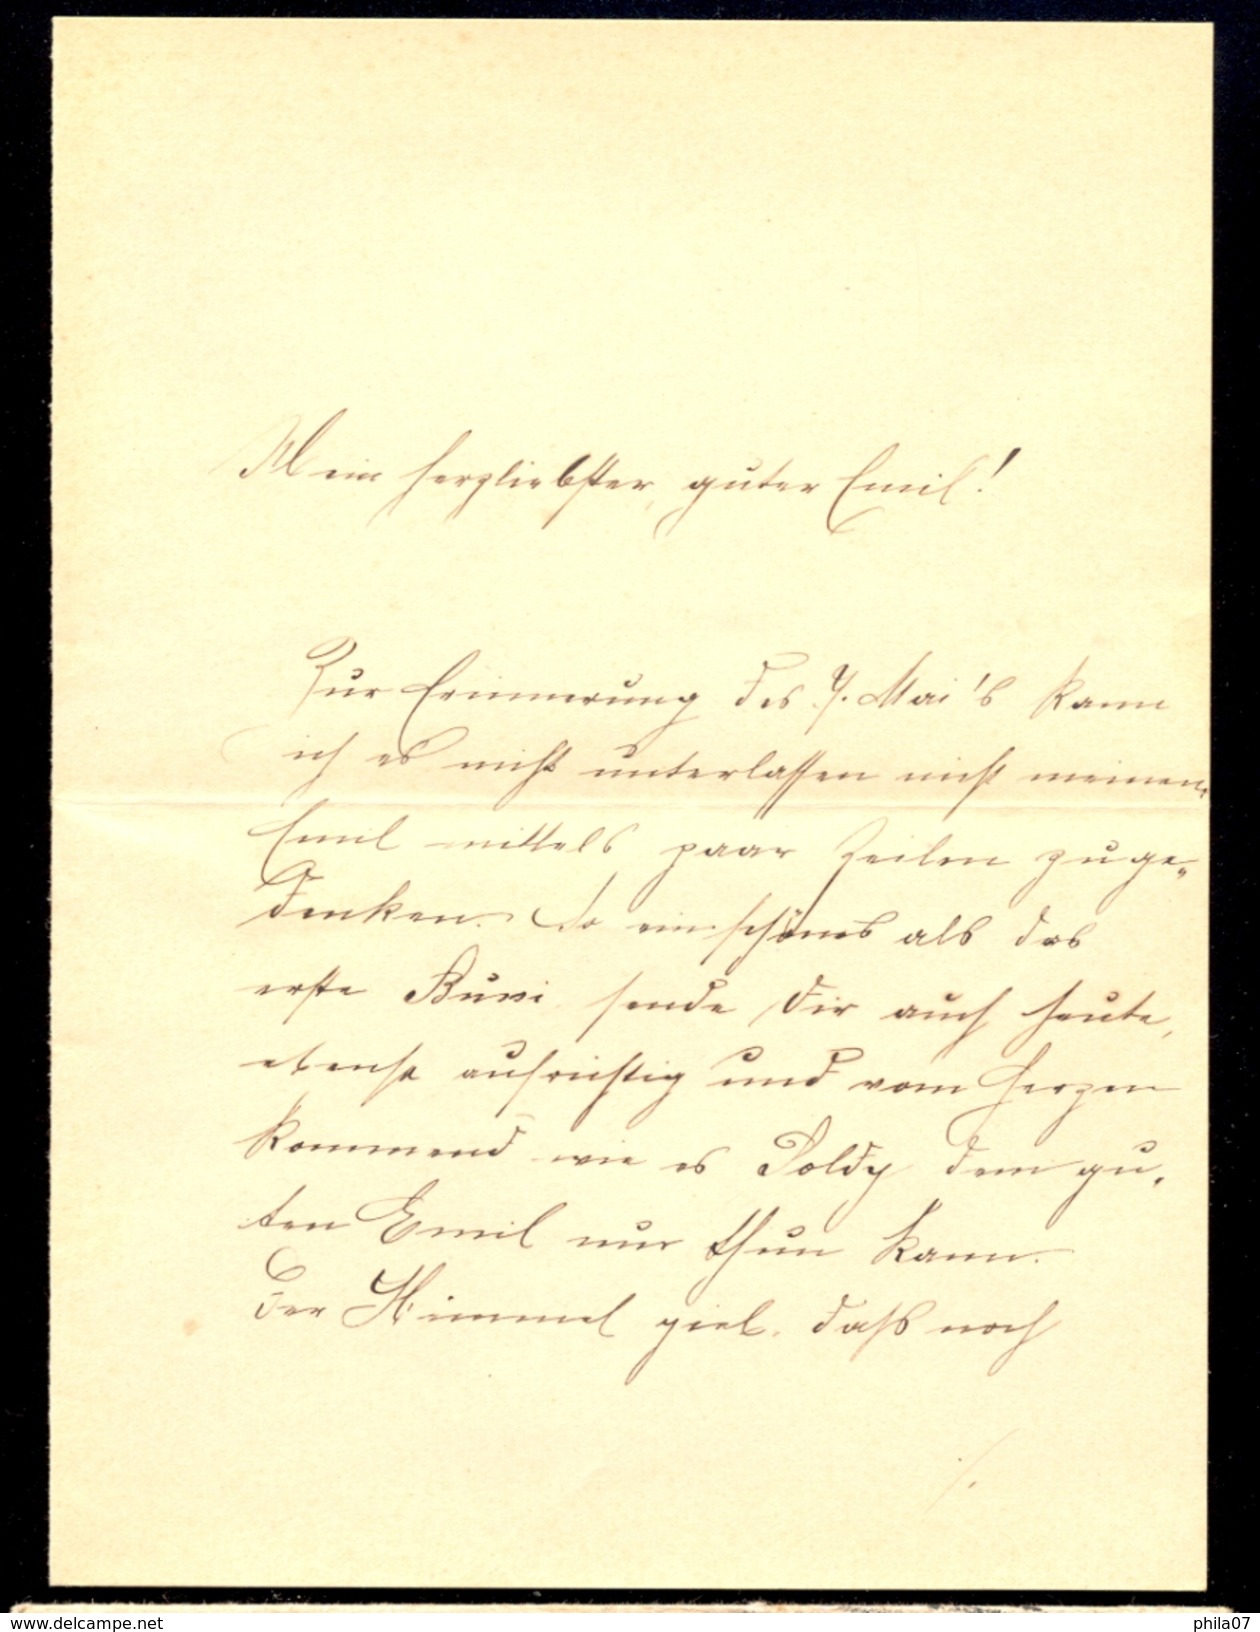 Mein herzliebster, guter Emil!
Zur Erinnerung des 7. Mai's kann
ich es nicht unterlassen nicht meinen
Emil mittels paar Zeilen zu ge-
denken. So ein schönes als das
erste Bussi sende Dir auch heute,
ebenso aufrichtig und vom Herzen
kommend wie es Poldy dem gu-
ten Emil nur thun kann.
Der Himmel daß noch
./.
www.delcampe.net
phila07